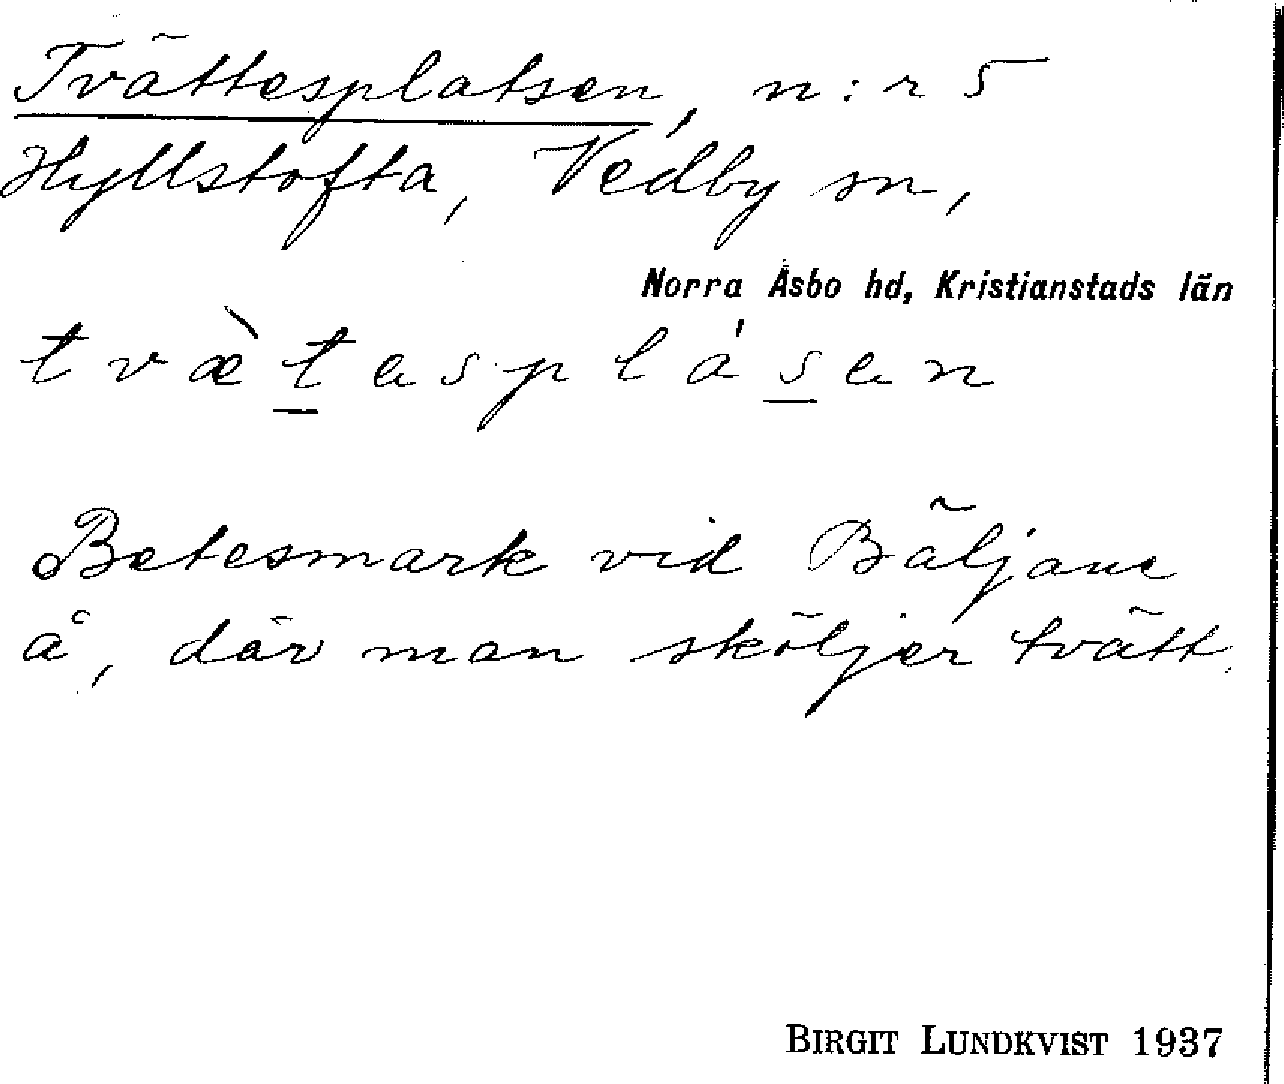 Tvättesplatsen, n:r 5
Hyllstofta, Vedby sn,
Norra Åsbo hd, Kristianstads län
tvæ̀t̲esplás̲en
Betesmark vid Bäljane
å, där man sköljer tvätt.
BIRGIT LUNDKVIST 1937